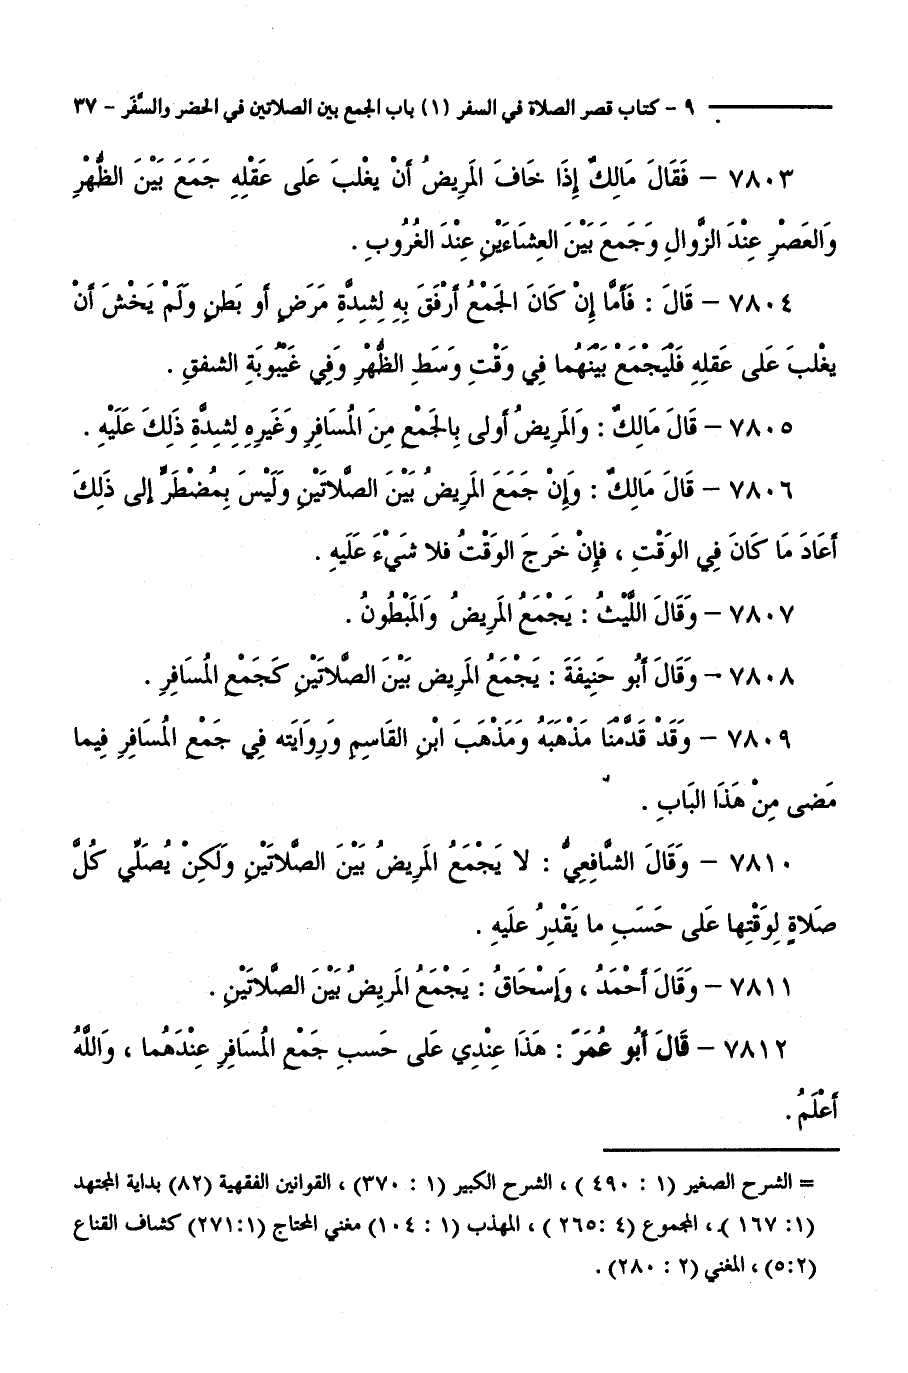 ٩ - كتاب قصر الصلاة في السفر (١) باب الجمع بين الصلاتين في الحضر والسَّفَر - ٣٧
٧٨٠٣ - فَقَالَ مَالِكٌ إِذَا خَافَ المَرِيضُ أَنْ يغْلبَ عَلى عَقْلِهِ جَمَعَ بَيْنَ الظُّهْرِ
وَالعَصْرِ عِنْدَ الزَّوالِ وَجَمعَ بَيْنَ العِشَاءَيْنِ عِنْدَ الغُرُوبِ .
٧٨٠٤ - قَالَ : فَأَمَّا إِنْ كَانَ الجَمْعُ أَرْفَقَ بِهِ لِشِدَّةِ مَرَضٍ أو بَطنٍ وَلَمْ يَخْشَ أنْ
يغْلبَ عَلى عَقلِهِ فَلْيَجْمَعْ بَيْنَهُما فِي وَقْتِ وَسَطِ الظُّهْرِ وَفِي غَيْبُوبَةِ الشفقِ .
٧٨٠٥ - قَالَ مَالِكٌ : وَالمَرِيضُ أولى بِالجَمْعِ مِنَ المُسَافِرِ وَغَيرِهِ لِشدَّةِ ذَلِكَ عَلَيْهِ .
٧٨٠٦ - قَالَ مَالِكٌ : وَإِنْ جَمَعَ المَرِيضُ بَيْنَ الصَّلاتَيْنِ وَلَيْسَ بِمُضْطَرٍّ إلى ذَلِكَ
أعَادَ مَا كَانَ فِي الوَقْتِ ، فَإِنْ خَرجَ الوَقْتُ فلا شَيْءَ عَلَيهِ .
٧٨٠٧ - وَقَالَ اللَّيْثُ : يَجْمَعُ المَرِيضُ وَالمَبْطُونُ .
٧٨٠٨ - وَقَالَ أَبُو حَنِيفَةَ : يَجْمَعُ المَرِيض بَيْنَ الصَّلاتَيْنِ كَجَمعِ المُسَافِرِ .
٧٨٠٩ - وَقَدْ قَدَّمْنَا مَذْهَبَهُ وَمَذْهَبَ ابْنِ القَاسِمِ وَرِوَايَته فِي جَمْعِ المُسَافِرِ فِيما
مَضى مِنْ هَذَا البَابِ .
٧٨١٠ - وَقَالَ الشَّافِعِيُّ : لا يَجْمَعُ المَرِيضُ بَيْنَ الصَّلاتَيْنِ وَلَكِنْ يُصَلِّي كُلَّ
صَلاةٍ لِوَقْتِها عَلى حَسَبِ ما يَقْدِرُ علَيهِ .
٧٨١١ - وَقَالَ أَحْمَدُ ، وَإِسْحَاقُ : يَجْمَعُ المَرِيضُ بَيْنَ الصَّلاتَيْنِ .
٧٨١٢ - قَالَ أَبُو عُمَرَ : هَذَا عِنْدِي عَلى حَسبِ جَمْعِ المُسَافِرِ عِنْدَهُما ، وَاللَّهُ
أعْلَمُ .
= الشرح الصغير (١ : ٤٩٠ ) ، الشرح الكبير (١ : ٣٧٠) ، القوانين الفقهية (٨٢) بداية المجتهد
(١: ١٦٧ ) ، المجموع (٤ :٢٦٥ ) ، المهذب (١ : ١٠٤) مغني المحتاج (٢٧١:١) كشاف القناع
(٥:٢) ، المغني (٢ : ٢٨٠) .